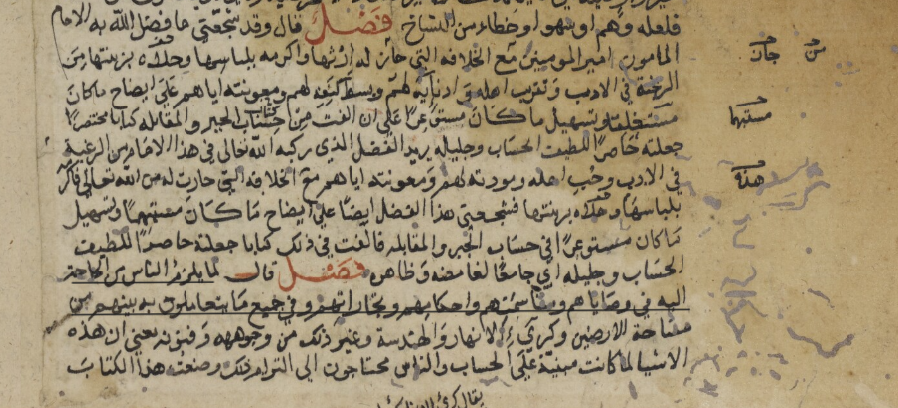 فلعله وهم او سهوا وخطاء من النساخ فصل قال وقد شجعني ما فضل الله به الامام
المامون امير المومنين مع الخلافه التي حاز له ارثها واكرمه بلباسها وحلاه بزينتها من
الرغبة في الادب وتقريب اهله وادنايه لهم وبسط كنفه لهم ومعونته اياهم على ايضاح ما كان
مستغلقا وتسهيل ما كان مستوعرا على ان الفت من حساب الجبر والمقابله كتابا مختصرا
جعلته حاصرا للطيف الحساب وجليله يريد الفضل الذي ركبه الله تعالى في هذا الامام من الرغبة
في الادب وحب اهله ومودته لهم ومعونته اياهم مع الخلافه التي حازت له من الله تعالى فاكرمه
بلباسها وحلاه بزينتها فشجعني هذا الفضل ايضا على ايضاح ما كان مستبهما وتسهيل
ما كان مستوعرا في حساب الجبر والمقابله فالفت في ذلك كتابا جعلته حاصرا للطيف
الحساب وجليله اي جامعا لغامضه وظاهره فصل قال لما يلزم الناس من الحاجة
اليه في وصاياهم ومقاسمتهم واحكامهم وتجاراتهم وفي جميع ما يتعاملون به بينهم من
مساحة الارضين وكري الانهار والهندسة وغير ذلك من وجوهه وفنونه يعني ان هذه
الاشيا لما كانت مبنية على الحساب والناس محتاجون الى التزام ذلك وصنعت هذا الكتاب
يقال كري
من
حاز
مستبهما
هذه